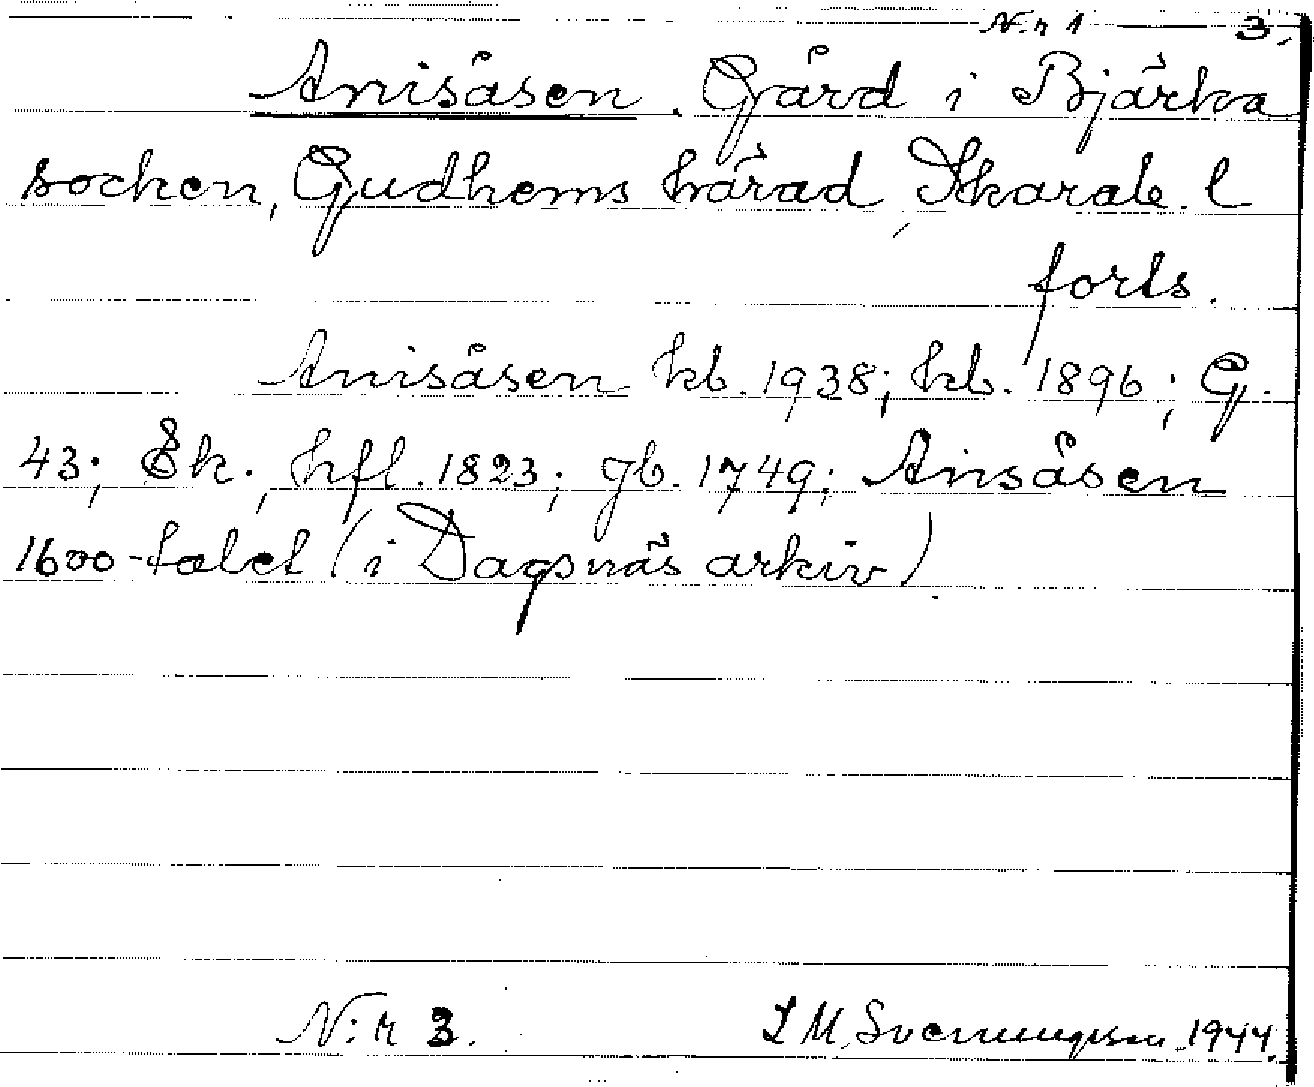 N:r 1 3.
Anisåsen. Gård i Bjärka
socken, Gudhems härad, Skarab. l
forts.
Anisåsen kb. 1938; kb. 1896; G.
43; Ek.; hfl. 1823; jb. 1749; Anisåsen
1600-talet (i Dagsnäs arkiv)
N:r 3. S M. Svenungsson 1944.